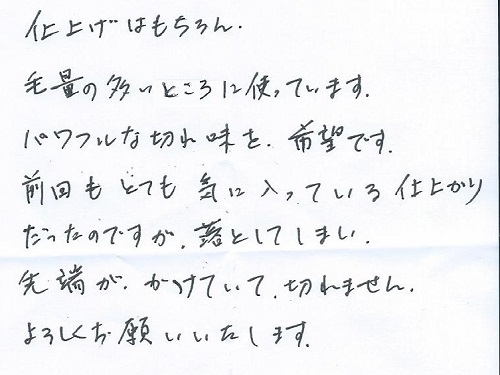 仕上げはもちろん.
毛量の多いところに使っています.
パワフルな切れ味を.希望です.
前回もとても気に入っている仕上がり
だったのですが.落としてしまい.
先端が.かけていて.切れません.
よろしくお願いいたします.